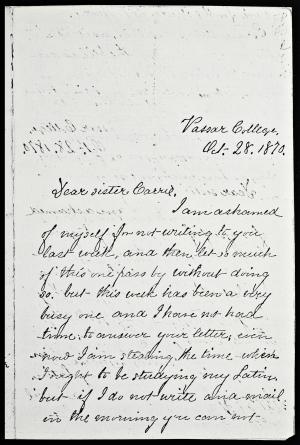 Vassar College,
Oct. 28. 1870.
Dear sister Carrie.
I am ashamed
of myself for not writing to you
last week, and then let so much
of this one pass by without doing
so. but this week has been a very
busy one and I have not had
time to answer your letter, even
now I am stealing the time when
I ought to be studying my Latin,
but if I do not write and mail
in the morning you can not